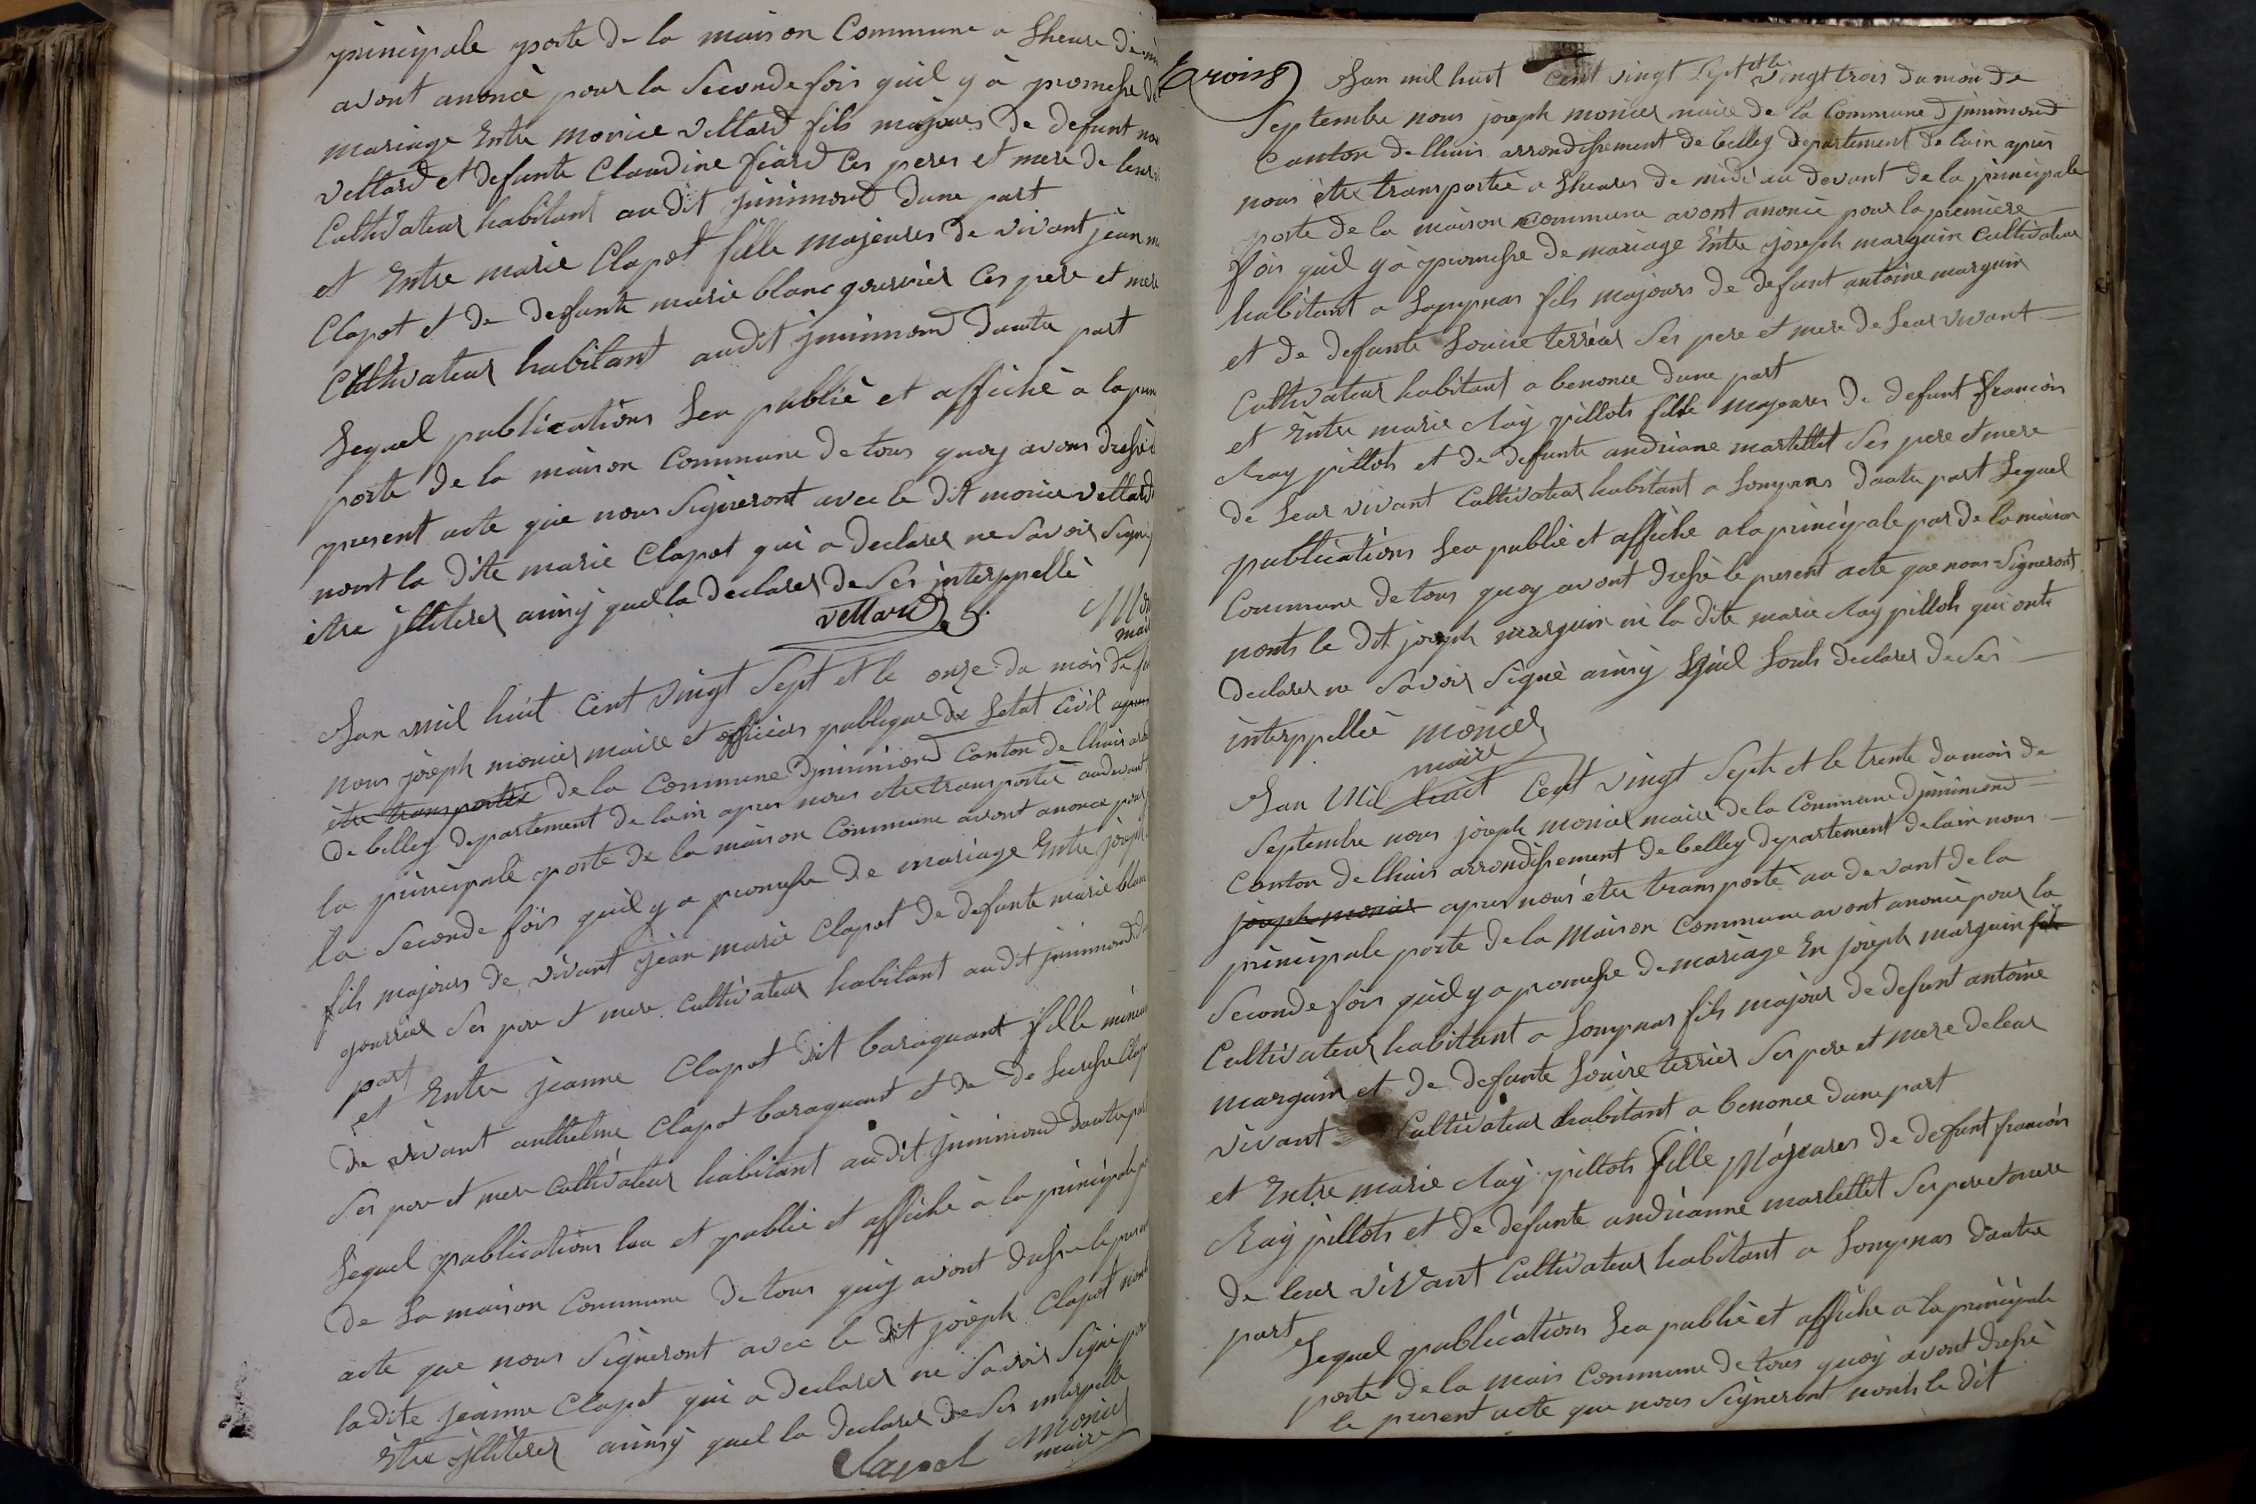 principale porte de la maison Commune a Lheure de
avont anoncè pour la Seconde fois quil y à promesse de
mariage Entre morice Vettard fils majeurs de defunt
Vettard et defunte Claudine fiard Ces peres et mere de leur
Cultivateur habitant audit jnnimond dune part
et Entre marie Clapot fille majeures de vivant jean
Clapot et de defunte marie blanc gourrier Ces pere et mere
Cultivateur habitant audit jnnimond dautre part
Lequel publications Leu publiè et affichè a la
porte de la maison Commune de tous quoy avons dressè
present acte que nous Signeront avec le dit morice vettard
nont la dite marie Clapot qui a declarer ne Savoir Signé
être jlliterer ainsy quel la declarer de Ses interppellè
vettard
maire
Lan mil huit Cent vingt Sept et le onze du mois de
nous joseph monier maire et officier publique de Letat Civil apres
être transportée de la Commune Djnnimond Canton de lhuis
de belley departement de lain apres nous etre transportée audevant
la principale porte de la maison Commune avont anoncé pour
la Seconde fois quil y a promesse de mariage Entre joseph
fils majeurs de vivant jean marie Clapot de defunte marie blanc
gourrier Ses pere et mere Cultivateur habitant audit jnnimond
part
et Entre jeanne Clapot dit baraquant fille mineur
de vivant anthelme Clapot baraquant et de
Ses pere et mere Cultivateur habitant audit jnnimond dautre part
Lequel publications leu et publie et affiche à la principale
de La maison Commune de tous quoy avont dresse le present
acte que nous Signeront avec le dit joseph Clapot nont
la dite jeanne Clapot qui a declarer ne Savoir Signé
Etre jlliterer ainsy quel la declarer de Ses interpelle
Clapot monier
maire
Lan mil huit Cent vingt Sept et le vingt trois du mois de
Septembre nous joseph monier maire de la Commune djnnimond
Canton de lhuis arrondissement de belley departement de lain apres
nous être transportée a Lheures de midi au devant de la principale
porte de la maison Commune avont anoncé pour la premiere
fois quil y a promesse de mariage Entre joseph marguin Cultivateur
habitant a Lompnas fils majeurs de defunt antoine marguin
et de defunte Louise terrier Ses pere et mere de Leur vivant
Cultivateur habitant a benonce dune part
et Entre marie Ray pillots fille majeures de defunt francois
Ray pillots et de defunte andrianne martellet Ses pere et mere
de Leur vivant Cultivateur habitant a Lompnas dautre part Lequel
publications Leu publié et affiche a la principale por de la maison
Commune de tous quoy avont dressè le present acte que nous Signeront
nonts le dit joseph marguin ni la dite marie Ray pillots qui onts
declarer ne Savoir Signè ainsy quil Lonts declarer de Ses
interppellée monier
maire
Lan Mil huit Cent vingt Septs et le trente du mois de
Septembre nous joseph monier maire de la Commune djnnimond
Canton de lhuis arrondissement de belley departement de lain nous
joseph monier apres nous etre transporté au devant de la
principale porte de la Maison Commune avont anoncè pour la
Seconde fois quil y a promesse de mariage En joseph marguin fils
Cultivateur habitant a Lompnas fils majeur de defunt antoine
marguin et de defunte Louise terrier Ses pere et mere de leur
vivant Cultivateur habitant a benonce dune part
et Entre marie Ray pillots fille Majeures de defunt francois
Ray pillots et de defunte andrianne martellet Ses pere et mere
de leur vivant Cultivateur habitant a Lompnas dautre
part
Lequel publications Leu publiè et affiche a la principale
porte de la mais Commune de tous quoy avont dressè
le present acte que nous Signeront nonts le dit